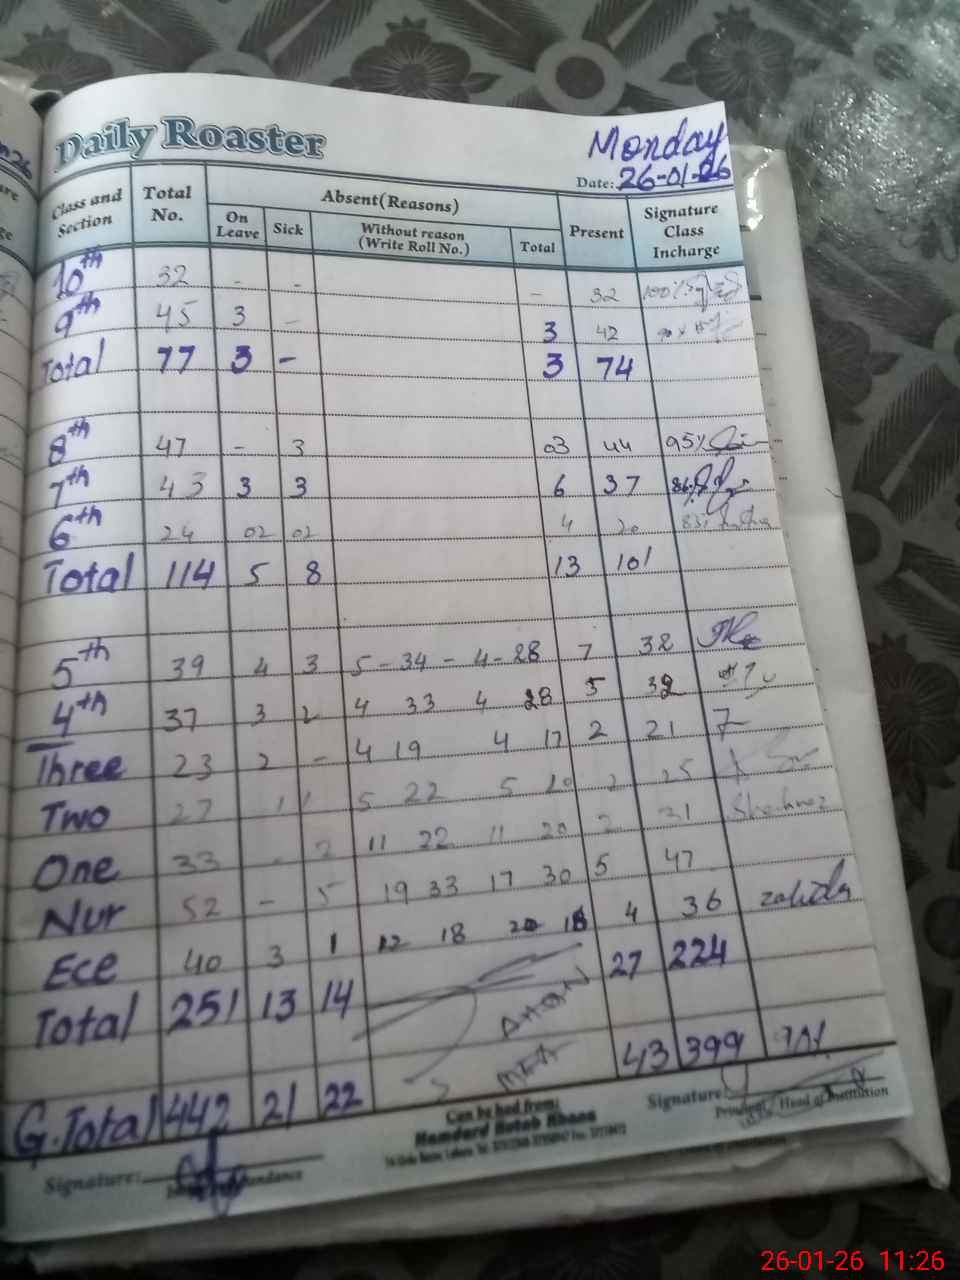 Daily Roaster
Monday
Date: 26-01-26
Class and Section Total No. Absent(Reasons) Present Signature Class Incharge
On Leave Sick Without reason (Write Roll No.) Total
10th 32 - - - 32 100%
9th 45 3 - 3 42
Total 77 3 - 3 74
8th 47 - 3 03 44 95%
7th 43 3 3 6 37 86%
6th 24 02 02 4 20 83%
Total 114 5 8 13 101
5th 39 4 3 5 - 34 - 4 - 28 7 32
4th 37 3 2 4 33 4 28 5 32
Three 23 2 - 4 19 4 17 2 21
Two 27 1 1 5 22 5 20 2 25
One 33 - 2 11 22 11 20 2 31 Shehnaz
Nur 52 - 5 19 33 17 30 5 47
Ece 40 3 1 12 18 20 16 4 36 zahida
Total 251 13 14 27 224
G.Total 442 21 22 43 399 90%
Can be had from:
Hamdard Kutab Khana
Signature: Principal / Head of Institution
Signature:
26-01-26 11:26